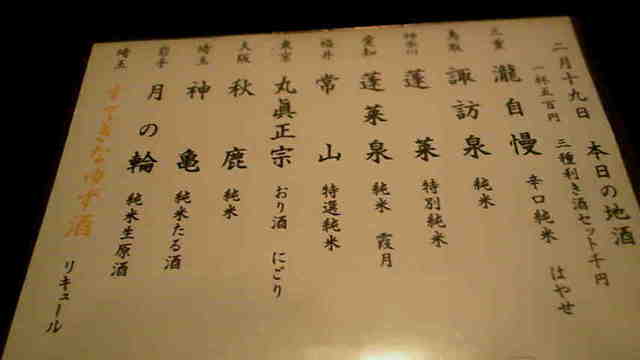 二月十九日 本日の地酒
一杯五百円 三種利き酒セット千円
三重 瀧自慢 辛口純米 はやせ
鳥取 諏訪泉 純米
神奈川 蓬莱 特別純米
愛知 蓬莱泉 純米 霞月
福井 常山 特選純米
東京 丸眞正宗 おり酒 にごり
大阪 秋鹿 純米
埼玉 神亀 純米たる酒
岩手 月の輪 純米生原酒
埼玉 すてきなゆず酒 リキュール